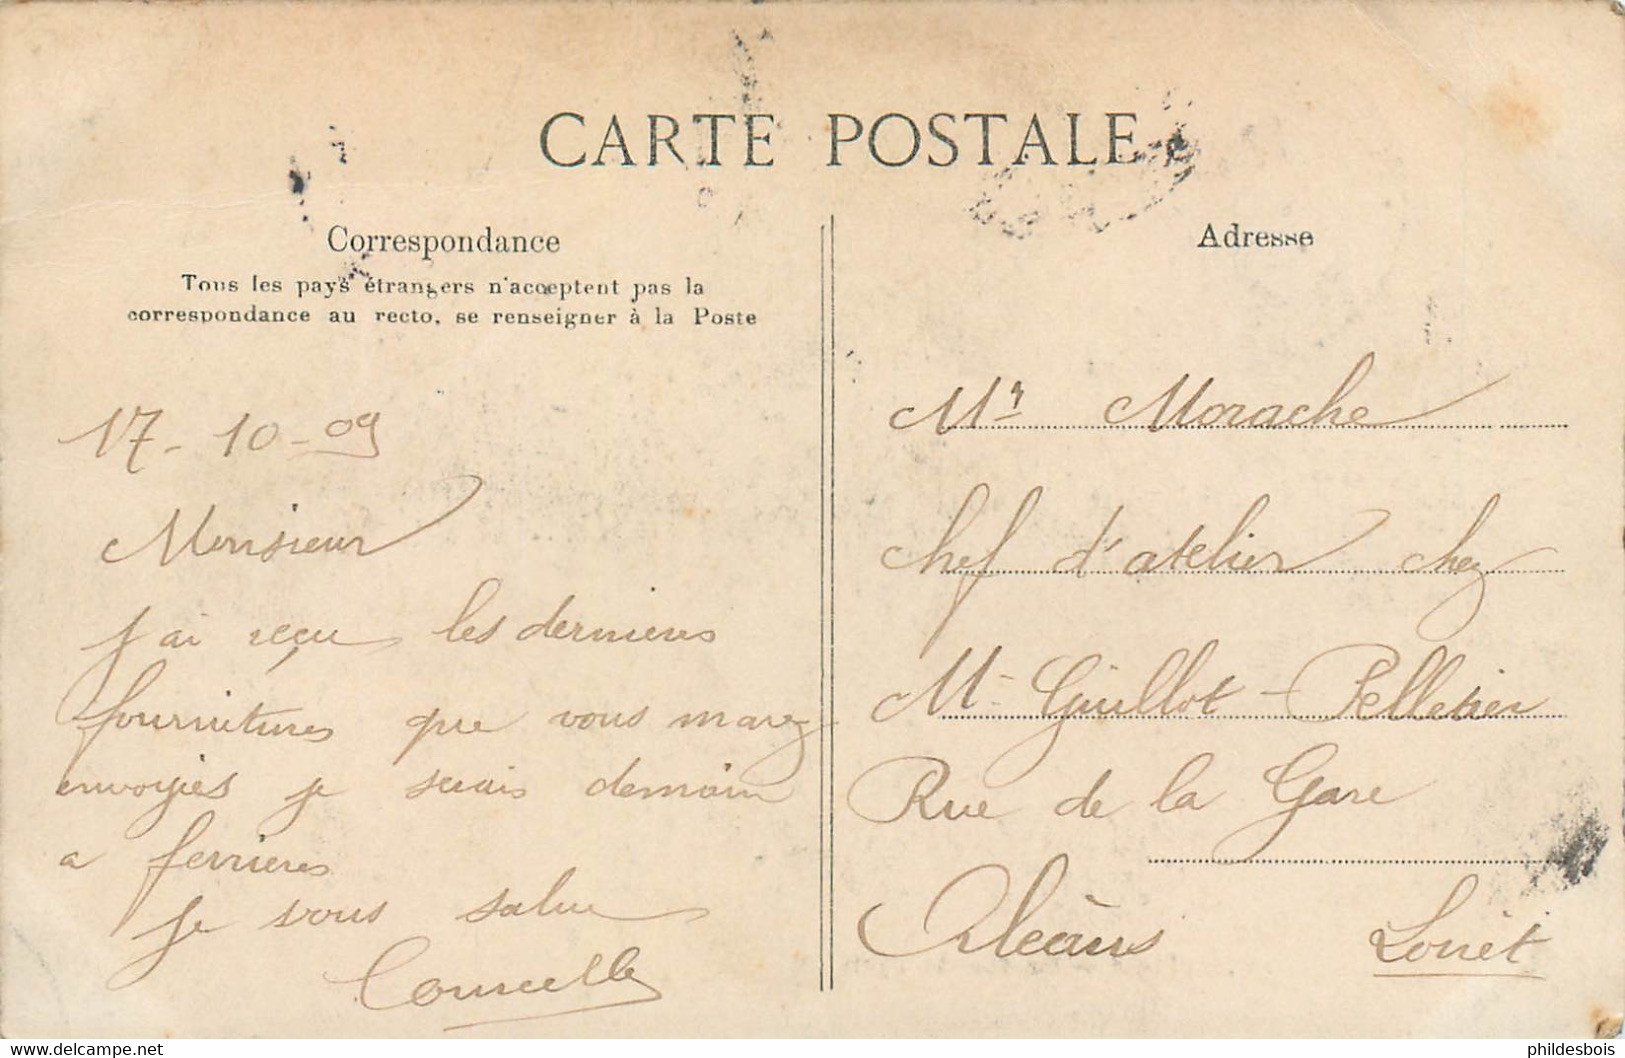 CARTE POSTALE
Correspondance
Tous les pays étrangers n'acceptent pas la
correspondance au recto, se renseigner à la Poste
17-10-09
Monsieur
j'ai reçu les dernieres
fournitures que vous marez
envoyies je serais demain
a ferrieres
je vous salue
Adresse
Mr Morache
chef d'atelier chez
M- Guillot-Pelletier
Rue de la Gare
Orléans Loiret
phildesbois